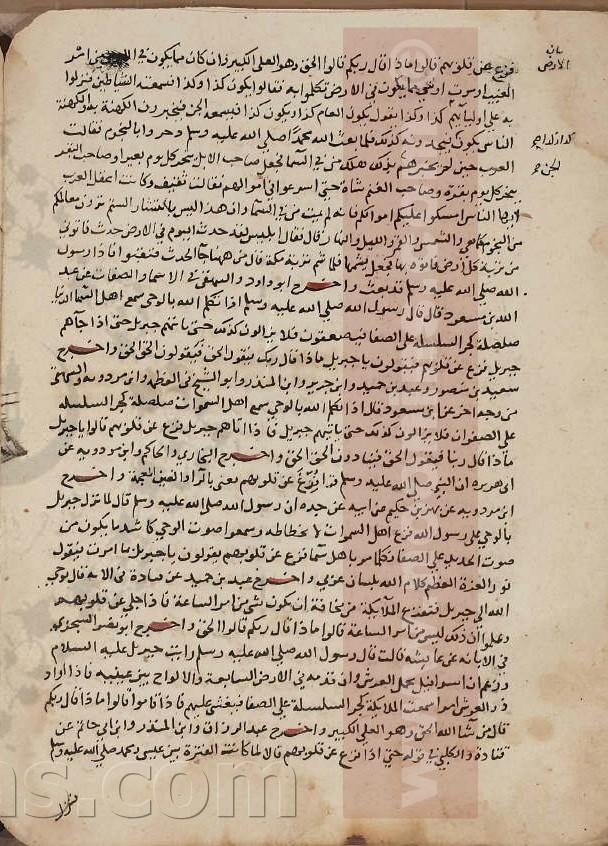 فزع عن قلوبهم قالوا ماذا قال ربكم قالوا الحق وهو العلي الكبير وان كان مما يكون في من امر
الغيب او موت او شي مما يكون في الارض تكلموا به فقالوا يكون كذا وكذا فسمعته الشياطين فنزلوا
به علي اوليايهم كذا وكذا يقول يكون العام كذا ويكون كذا فيسمعه الجن فيخبرون الكهنة به والكهنة
الناس يكون كذا وكذا فلما بعث الله محمدا صلي الله عليه وسلم دحروا بالنجوم فقالت
العرب حين لم يخبرهم الجن بذلك هلك من في السما فجعل صاحب الابل ينحر كل يوم بعيرا وصاحب البقر
ينحر كل يوم بقرة وصاحب الغنم شاة حتي اسرعوا في اموالهم فقالت ثقيف وكانت اعقل العرب
ايها الناس امسكوا عليكم اموالكم فانه لم يمت من في السما وان هذا ليس بانتشار الستم ترون معالمكم
من النجوم كما هي والشمس والقمر والليل والنهار قال فقال ابليس لقد حدث اليوم في الارض حدث فاتوني
من تربة كل ارض فاتوه بها فجعل يشمها فلما شم تربة مكة قال من ههنا جا الحدث فنقبوا فاذا رسول
الله صلي الله عليه وسلم قد بعث واخرج ابو داود والبيهقي في الاسما والصفات عن عبد
الله بن مسعود قال قال رسول الله صلي الله عليه وسلم اذا تكلم الله بالوحي سمع اهل السما الدنيا
صلصلة كجر السلسلة علي الصفا فيصعقون فلا يزالون كذلك حتي ياتيهم جبريل حتي اذا جاهم
جبريل فزع عن قلوبهم فيقولون يا جبريل ماذا قال ربك فيقول الحق فيقولون الحق الحق واخرج
سعيد بن منصور وعبد بن حميد وابن جرير وابن المنذر وابو الشيخ في العظمة وابن مردويه والبيهقي
من وجه اخر عن ابن مسعود قال اذا تكلم الله بالوحي سمع اهل السموات صلصلة كجر السلسلة
علي الصفوان فلا يزالون كذلك حتي ياتيهم جبريل فاذا اتاهم جبريل فزع عن قلوبهم قالوا يا جبريل
ماذا قال ربنا فيقول الحق فينادون الحق الحق واخرج البخاري والحاكم وابن مردويه عن
ابي هريرة ان النبي صلي الله عليه وسلم قرا فزع عن قلوبهم يعني بالرا والغين المعجمة واخرج
ابن مردويه عن بهز بن حكيم عن ابيه عن جده ان رسول الله صلي الله عليه وسلم قال لما نزل جبريل
بالوحي علي رسول الله فزع اهل السموات لانحطاطه وسمعوا صوت الوحي كاشد ما يكون من
صوت الحديد علي الصفا فكلما مر باهل سما فزع عن قلوبهم يقولون يا جبريل بما امرت فيقول
نور العزة العظيم كلام الله بلسان عربي واخرج عبد بن حميد عن قتادة في الاية قال يوحي
الله الي جبريل فتفزع الملايكة من مخافة ان يكون شي من امر الساعة فاذا جلي عن قلوبهم
وعلموا ان ذلك ليس من امر الساعة قالوا ماذا قال ربكم قالوا الحق واخرج ابو نصر السجزي
في الابانة عن عايشة قالت قال رسول الله صلي الله عليه وسلم رايت جبريل عليه السلام
وزعم ان اسرافيل يحمل العرش وان قدمه في الارض السابعة والالواح بين عينيه فاذا اراد
ذو العرش امرا سمعت الملايكة كجر السلسلة علي الصفا فيغشي عليهم فاذا قاموا قالوا ماذا قال ربكم
قال من شا الله الحق وهو العلي الكبير واخرج عبد الرزاق وابن المنذر وابن ابي حاتم عن
قتادة والكلبي في قوله حتي اذا فزع عن قلوبهم قالا لما كانت الفترة بين عيسي ومحمد صلي الله عليه وسلم
الارض
ns.com